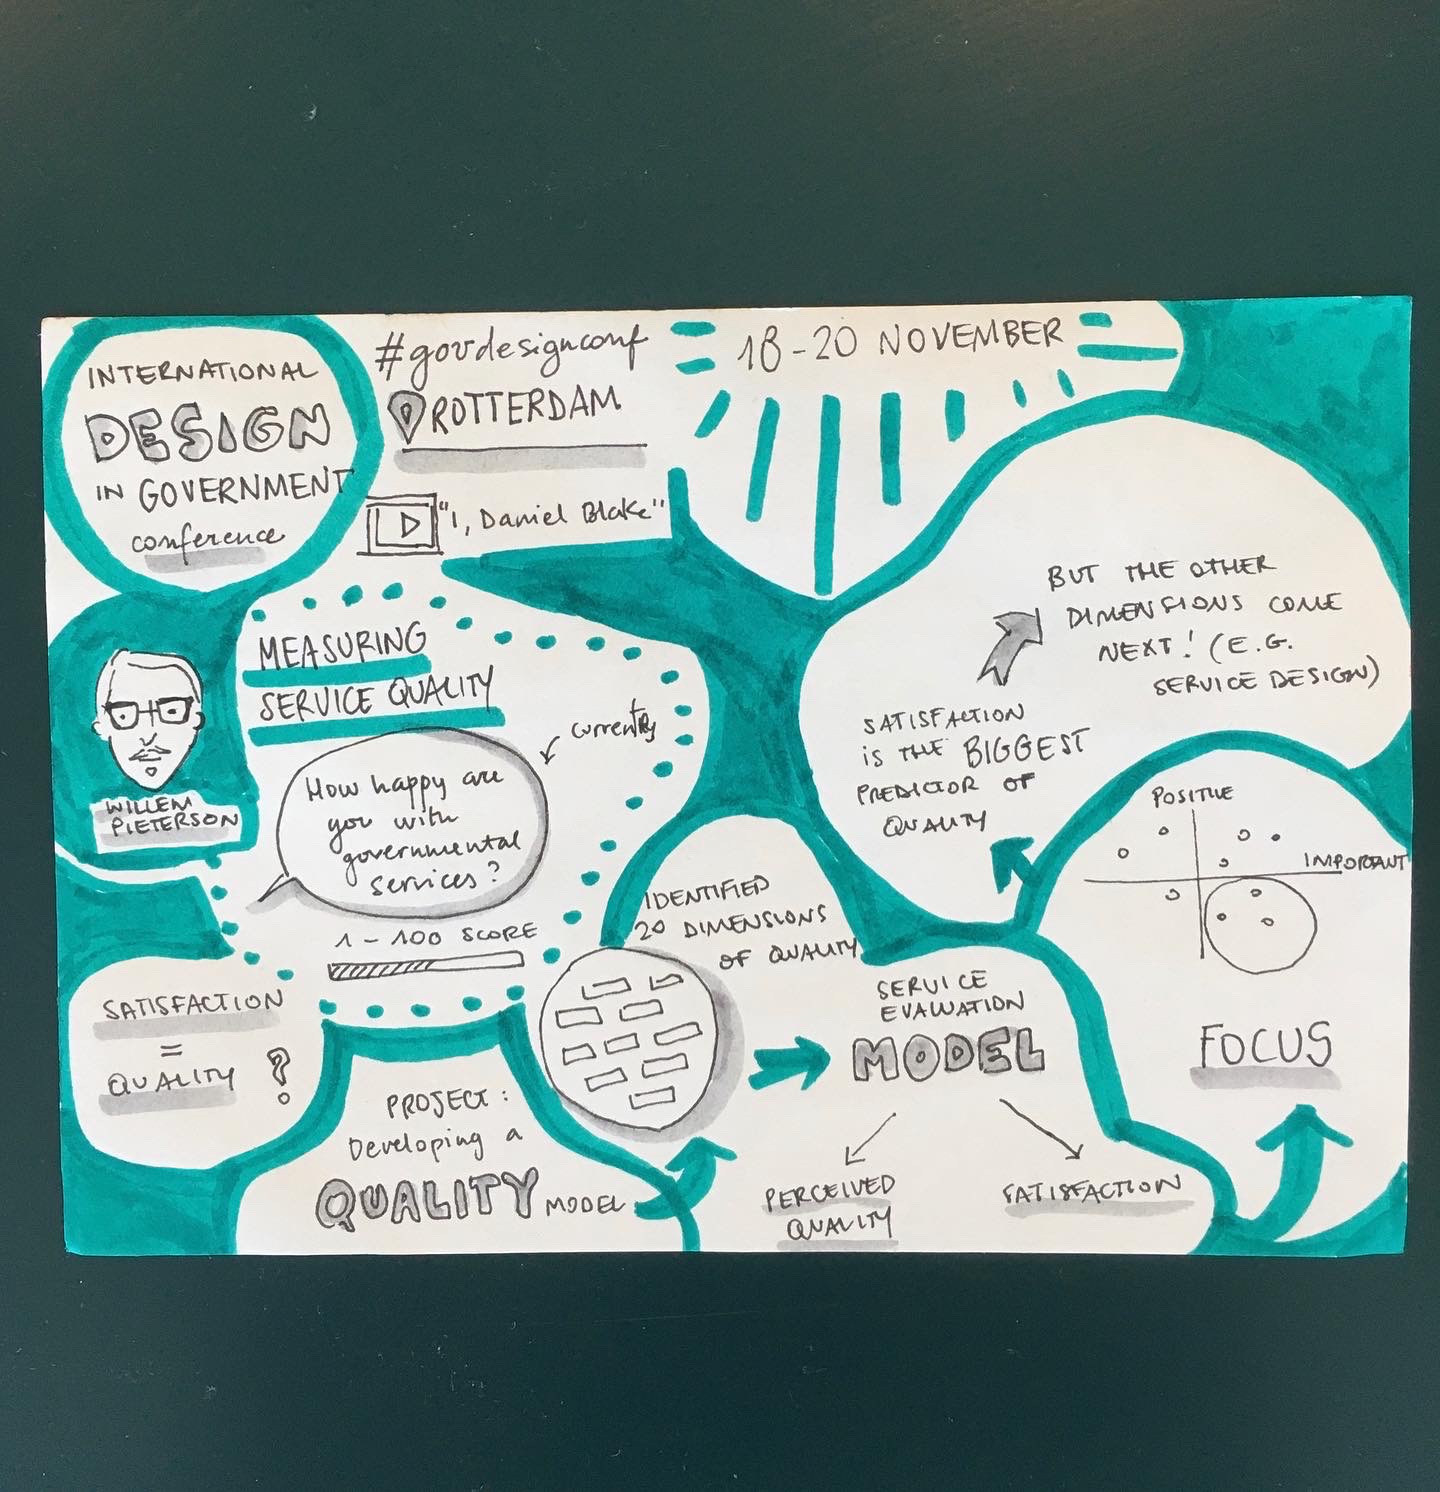 INTERNATIONAL
DESIGN
IN GOVERNMENT
conference
#govdesignconf
ROTTERDAM
"I, Daniel Blake"
18-20 NOVEMBER
WILLEM
PIETERSON
MEASURING
SERVICE QUALITY
currently
How happy are
you with
governmental
services?
1-100 SCORE
SATISFACTION
=
QUALITY ?
PROJECT:
Developing a
QUALITY MODEL
IDENTIFIED
20 DIMENSIONS
OF QUALITY
SERVICE
EVALUATION
MODEL
PERCEIVED
QUALITY
SATISFACTION
SATISFACTION
IS THE BIGGEST
PREDICTOR OF
QUALITY
BUT THE OTHER
DIMENSIONS COME
NEXT! (E.G.
SERVICE DESIGN)
POSITIVE
IMPORTANT
FOCUS